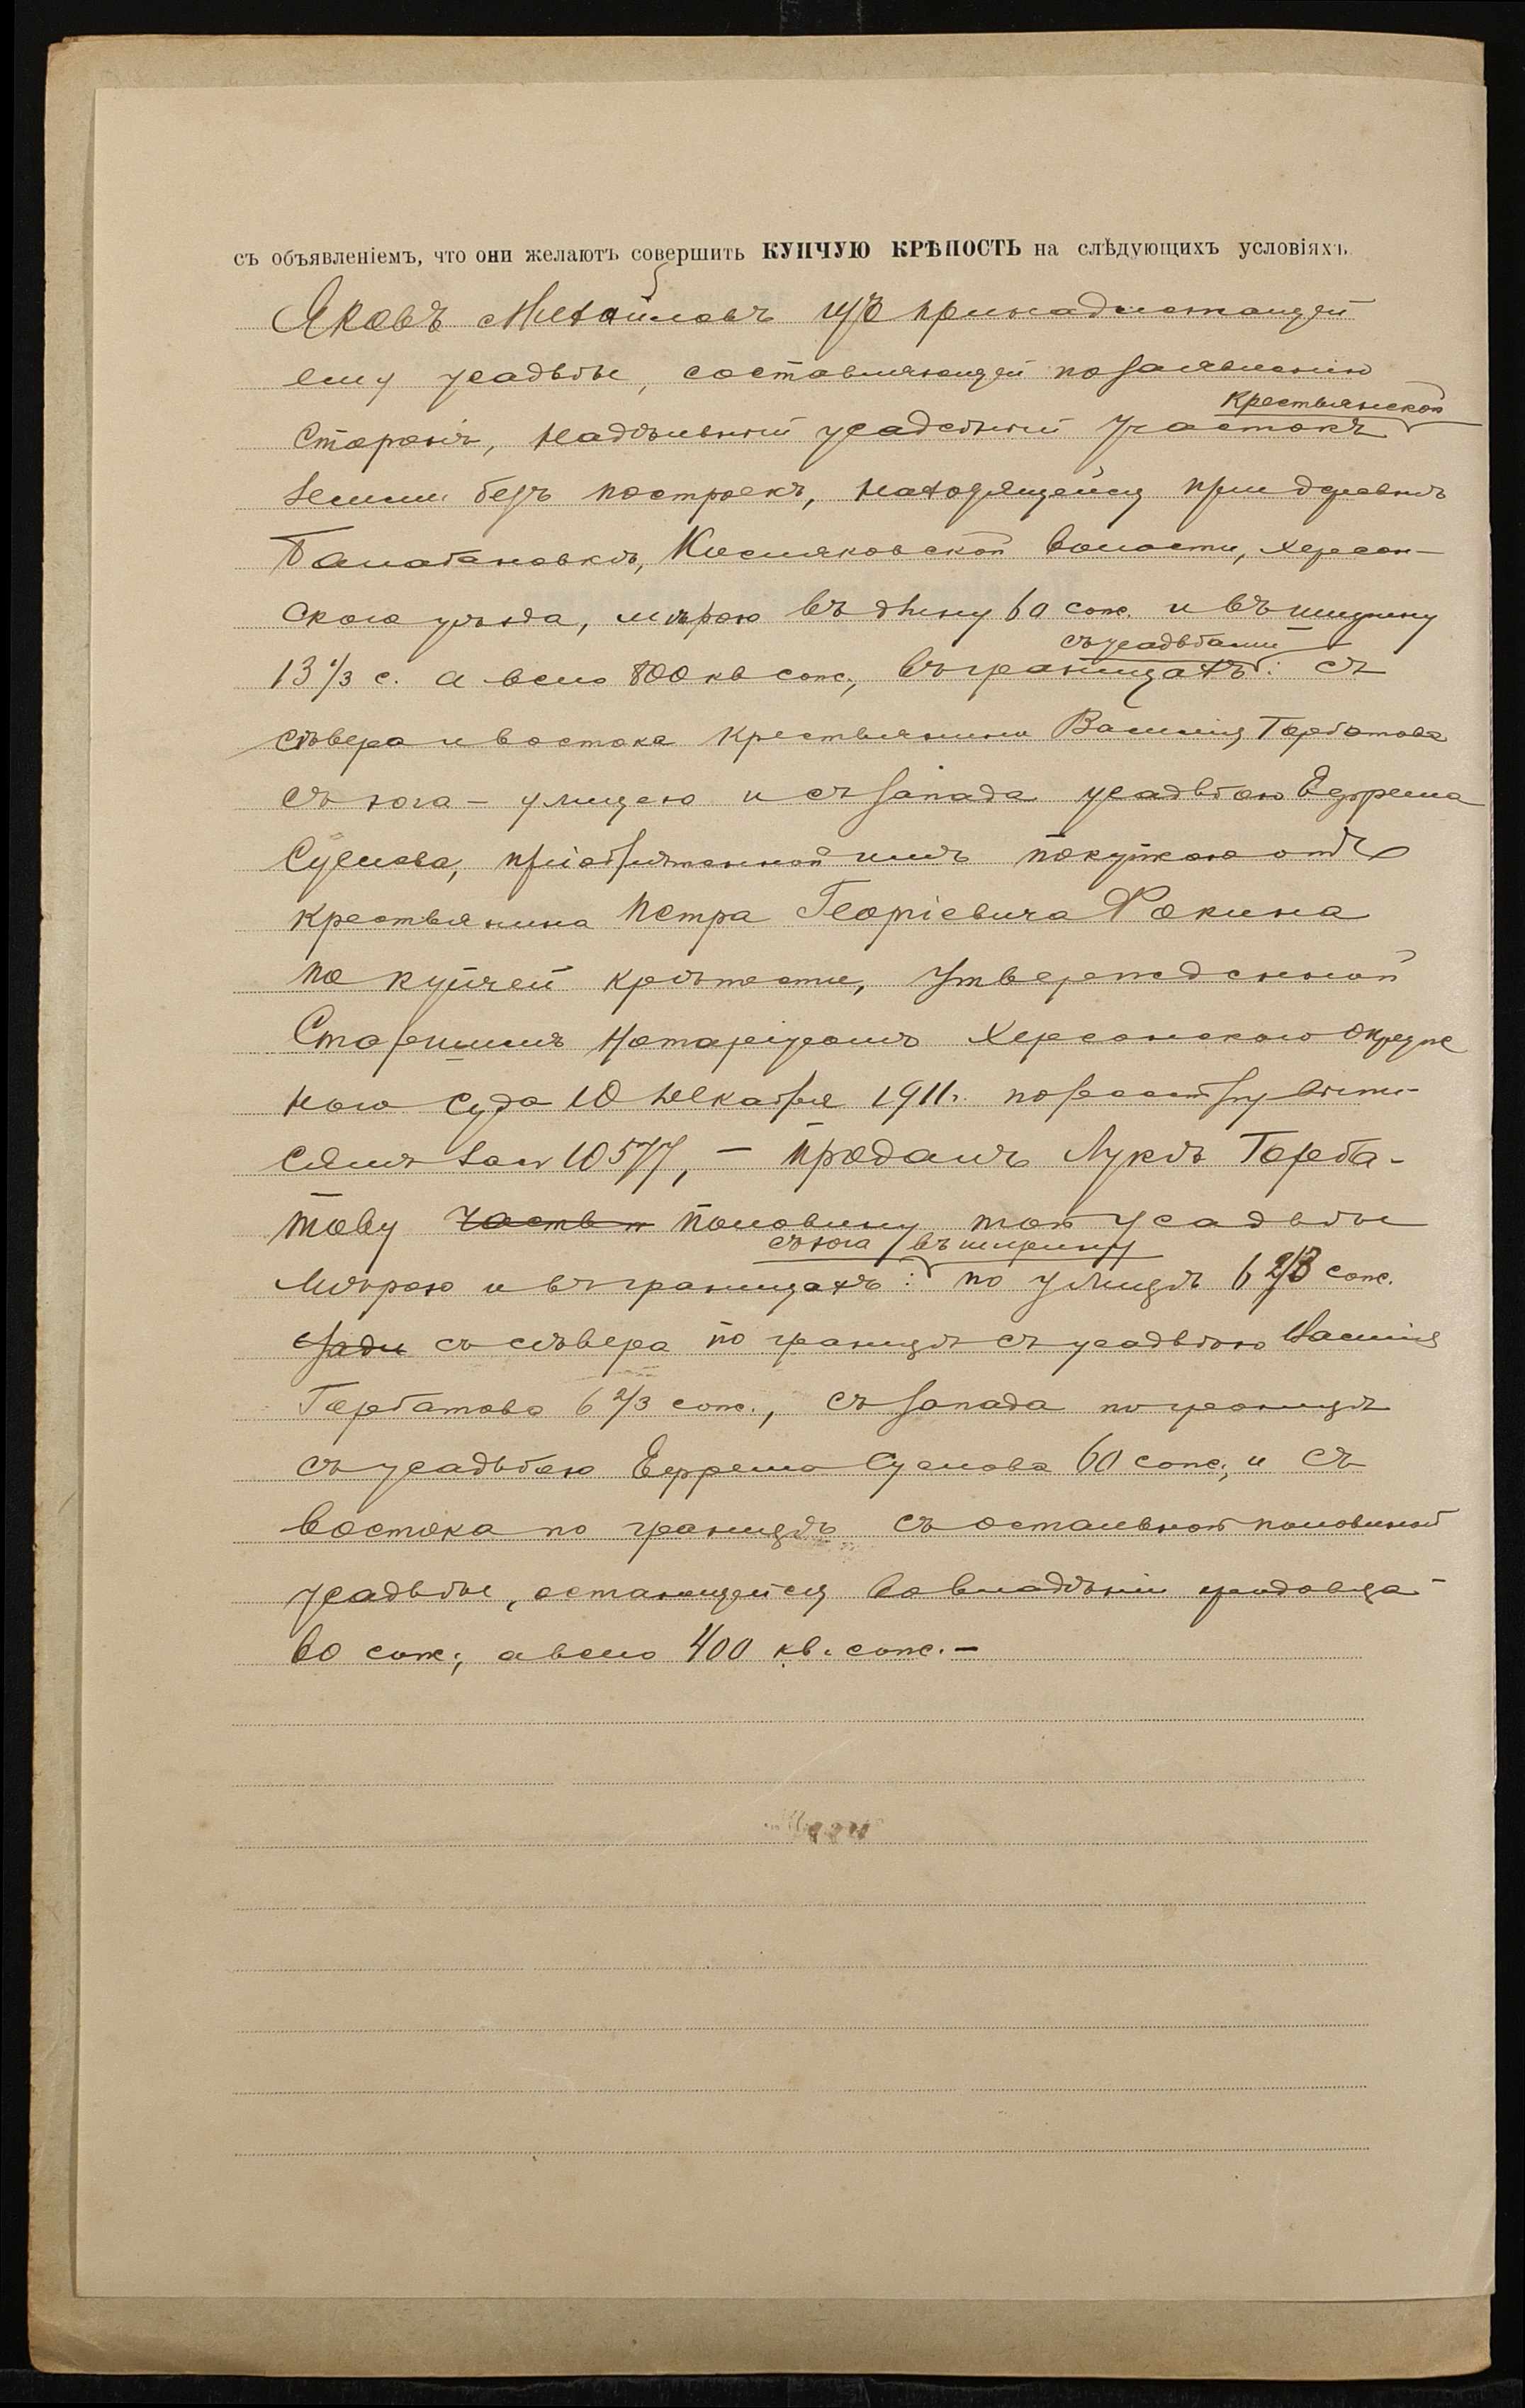 съ объявленіемъ, что они желаютъ совершить КУПЧУЮ КРѢПОСТЬ на слѣдующихъ условіяхъ
Яковъ Михайловъ изъ принадлежащей
ему усадьбы, составляющей по заявленію
крестьянской
сторонъ, надѣльный усадебный участокъ
земли безъ построекъ, находящейся при деревнѣ
Балабановкѣ, Кисляковской волости, Херсон-
скаго уѣзда, мѣрою въ длину 60 саж. и въ ширину
съ усадьбами
13 1/3 с. а всего 800 кв саж., въ границахъ: съ
сѣвера и востока крестьянина Василія Горбатова
съ юга - улицею и съ запада усадьбою Ефрема
пріобрѣтенной имъ покупкою отъ
крестьянина Петра Георгіевича Фокина
по купчей крѣпости, утвержденной
Старшимъ Нотаріусомъ Херсонскаго Окруж
наго Суда 10 Декабря 1911 г. по реестру
за № 10577, - продалъ Лукѣ Горба-
тову часть половину той усадьбы
съ юга въ ширину
мѣрою и въ границахъ: по улицѣ 6 2/3 саж.
сзади съ сѣвера по границѣ съ усадьбою Василія
Горбатова 6 2/3 саж., съ запада по границѣ
съ усадьбою Ефрема 60 саж., и съ
востока по границѣ съ остальной половиной
усадьбы, остающейся во владѣніи продавца
60 саж., а всего 400 кв. саж. -